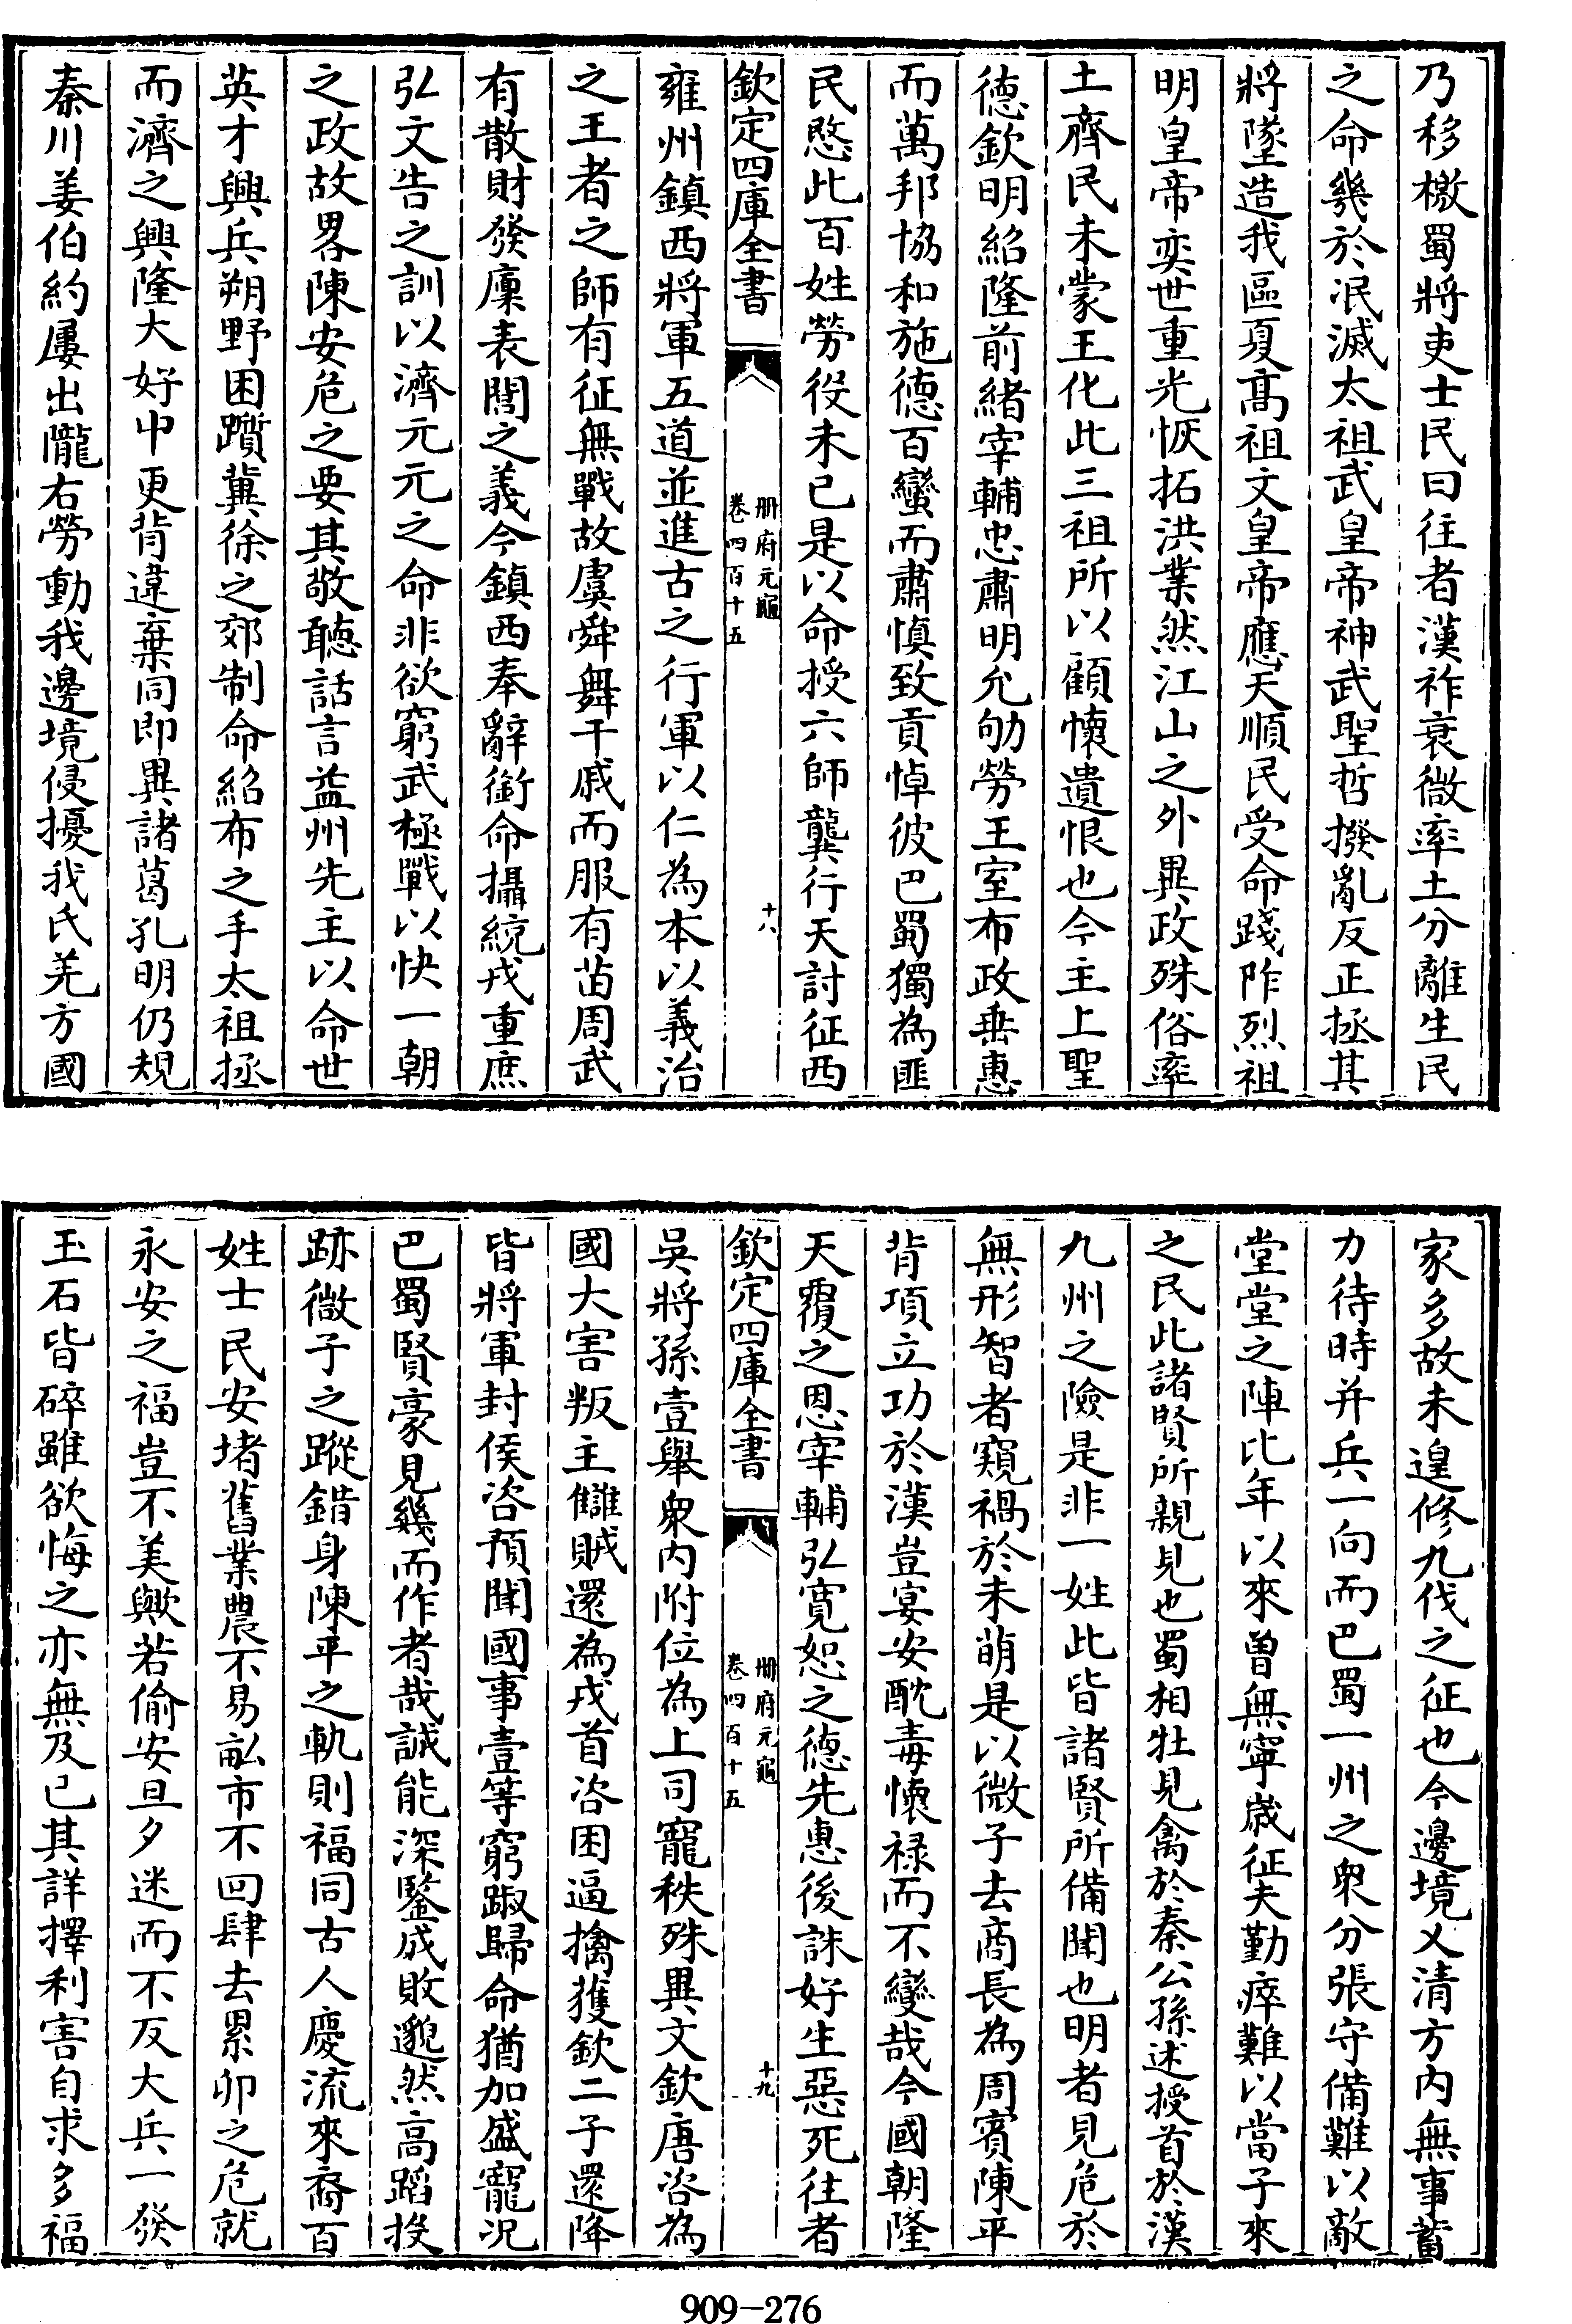 乃移檄蜀將吏士民曰往者漢祚衰微率土分離生民
之命幾於冺滅太祖武皇帝神武聖哲撥亂反正拯其
將墜造我區夏髙祖文皇帝應天順民受命踐阼烈祖
明皇帝奕世重光恢拓洪業然江山之外異政殊俗率
土齊民未蒙王化此三祖所以顧懷遺恨也今主上聖
德欽明紹隆前緒宰輔忠肅明允劬勞王室布政垂惠
而萬邦協和施德百蠻而肅慎致貢悼彼巴蜀獨為匪
民愍此百姓勞役未已是以命授六師龔行天討征西
欽定四庫全書
册府元龜
卷四百十五
十八
雍州鎮西將軍五道並進古之行軍以仁為本以義治
之王者之師有征無戰故虞舜舞干戚而服有苗周武
有散財發廩表閭之義今鎮西奉辭銜命攝統戎重庶
弘文告之訓以濟元元之命非欲窮武極戰以快一朝
之政故畧陳安危之要其敬聽話言益州先主以命世
英才興兵朔野困躓冀徐之郊制命紹布之手太祖拯
而濟之興隆大好中更背違棄同即異諸葛孔明仍規
秦川姜伯約屢出隴右勞動我邊境侵擾我氐羌方國
家多故未遑修九伐之征也今邊境乂清方内無事蓄
力待時并兵一向而巴蜀一州之衆分張守備難以敵
堂堂之陣比年以來曾無寧歲征夫勤瘁難以當子來
之民此諸賢所親見也蜀相牡見禽於秦公孫述授首於漢
九州之險是非一姓此皆諸賢所備聞也明者見危於
無形智者窺禍於未萌是以微子去商長為周賓陳平
背項立功於漢豈宴安酖毒懷禄而不變哉今國朝隆
天覆之恩宰輔弘寛恕之德先惠後誅好生惡死往者
欽定四庫全書
册府元龜
卷四百十五
十九
吳將孫壹舉衆内附位為上司寵秩殊異文欽唐咨為
國大害叛主讎賊還為戎首咨困逼擒獲欽二子還降
皆將軍封侯咨預聞國事壹等窮踧歸命猶加盛寵况
巴蜀賢豪見幾而作者哉誠能深鑒成敗邈然高蹈投
跡微子之蹤錯身陳平之軌則福同古人慶流來裔百
姓士民安堵舊業農不易畝市不回肆去累卵之危就
永安之福豈不美歟若偷安旦夕迷而不反大兵一發
玉石皆碎雖欲悔之亦無及已其詳擇利害自求多福
909-276